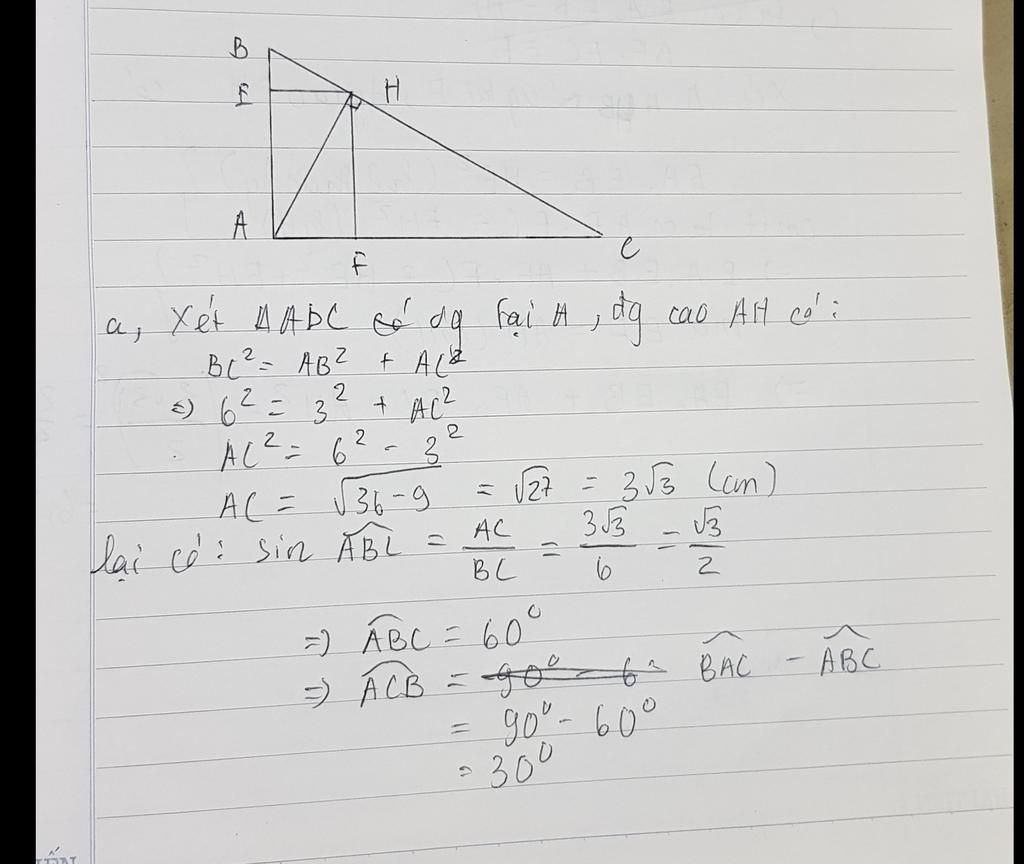 B
E
H
A
F
C
a, Xét ΔABC có dg tại A, đg cao AH có:
BC² = AB² + AC²
⇔ 6² = 3² + AC²
AC² = 6² - 3²
AC = √36-9 = √27 = 3√3 (cm)
lại có: sin ABC = AC/BC = 3√3/6 = √3/2
⇒ ABC = 60⁰
⇒ ACB = 90⁰ - 6 BAC - ABC
= 90⁰ - 60⁰
= 30⁰